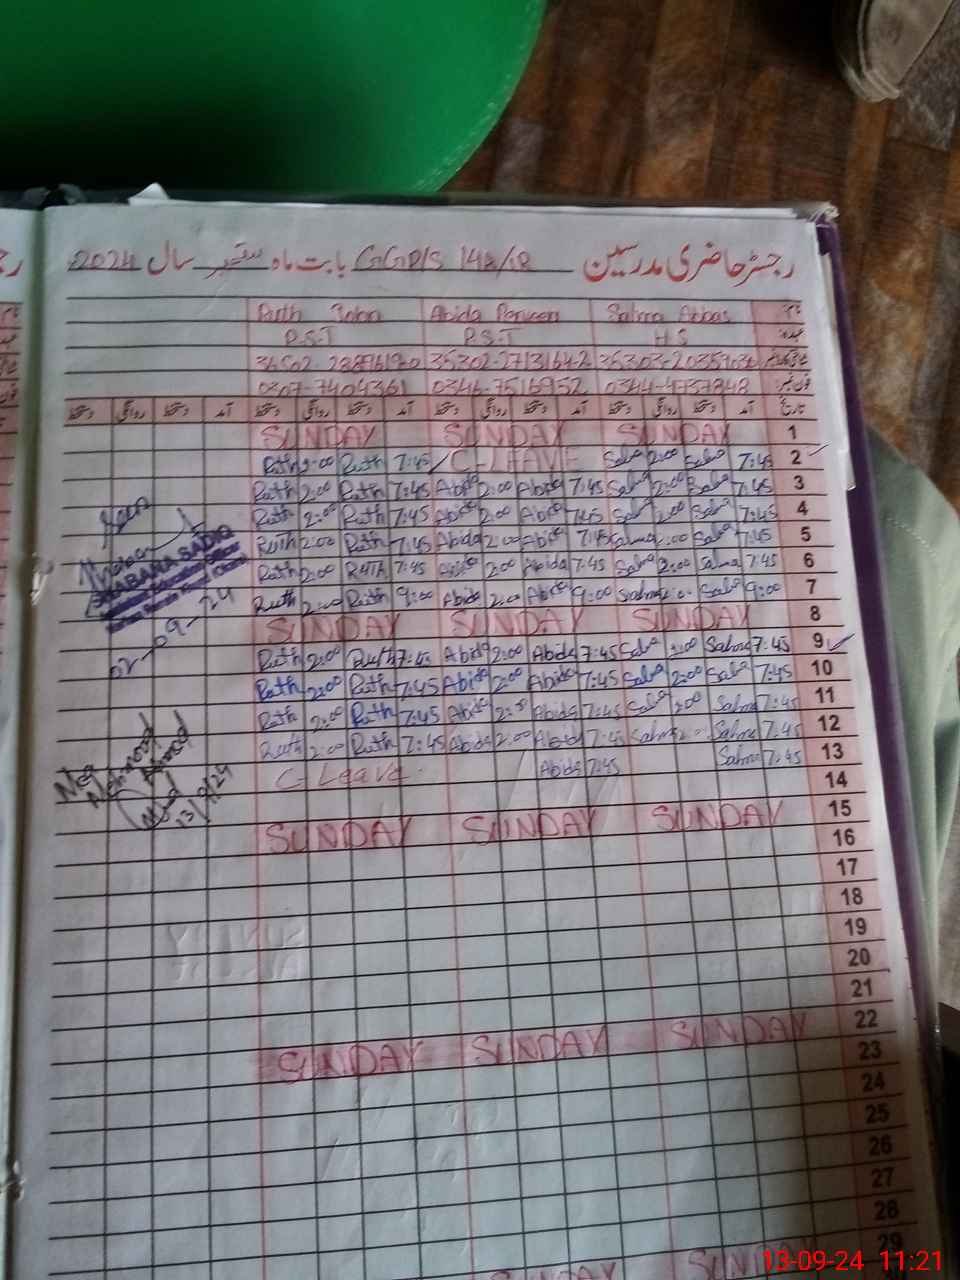 رجسٹر حاضری مدرسین GGP/S 148/1R بابت ماہ ستمبر سال 2024
نام Salma Abbas Abida Perveen Ruth John
عہدہ H S P.S.T P.S.T
35302-2713164-2
0344-4737848 0346-7516952 0307-7404361
تاریخ آمد دستخط روانگی دستخط آمد دستخط روانگی دستخط آمد دستخط روانگی دستخط آمد دستخط روانگی دستخط
1 SUNDAY SUNDAY SUNDAY
2 7:45 Salma 2:00 Salma C-LEAVE 7:45 Ruth 2:00 Ruth
3 7:45 Salma 2:00 Salma 7:45 Abida 2:00 Abida 7:45 Ruth 2:00 Ruth
4 7:45 Salma 2:00 Salma 7:45 Abida 2:00 Abida 7:45 Ruth 2:00 Ruth
5 7:45 Salma 2:00 Salma 7:45 Abida 2:00 Abida 7:45 Ruth 2:00 Ruth
6 7:45 Salma 2:00 Salma 7:45 Abida 2:00 Abida 7:45 RUTH 2:00 Ruth
7 9:00 Salma 2:00 Salma 9:00 Abida 2:00 Abida 9:00 Ruth 2:00 Ruth
8 SUNDAY SUNDAY SUNDAY
9 7:45 Salma 2:00 Salma 7:45 Abida 2:00 Abida 7:45 Ruth 2:00 Ruth
10 7:45 Salma 2:00 Salma 7:45 Abida 2:00 Abida 7:45 Ruth 2:00 Ruth
11 7:45 Salma 2:00 Salma 7:45 Abida 2:00 Abida 7:45 Ruth 2:00 Ruth
12 7:45 Salma 2:00 Salma 7:45 Abida 2:00 Abida 7:45 Ruth 2:00 Ruth
13 7:45 Salma 7:45 Abida C-Leave
14
15 SUNDAY SUNDAY SUNDAY
16
17
18
19
20
21
22 SUNDAY SUNDAY SUNDAY
23
24
25
26
27
28
29 SUNDAY SUNDAY SUNDAY
Seen
SHABANA SADIQ
Education Officer
02-09-24
Mehmood
Ahmed
13/9/24
13-09-24 11:21